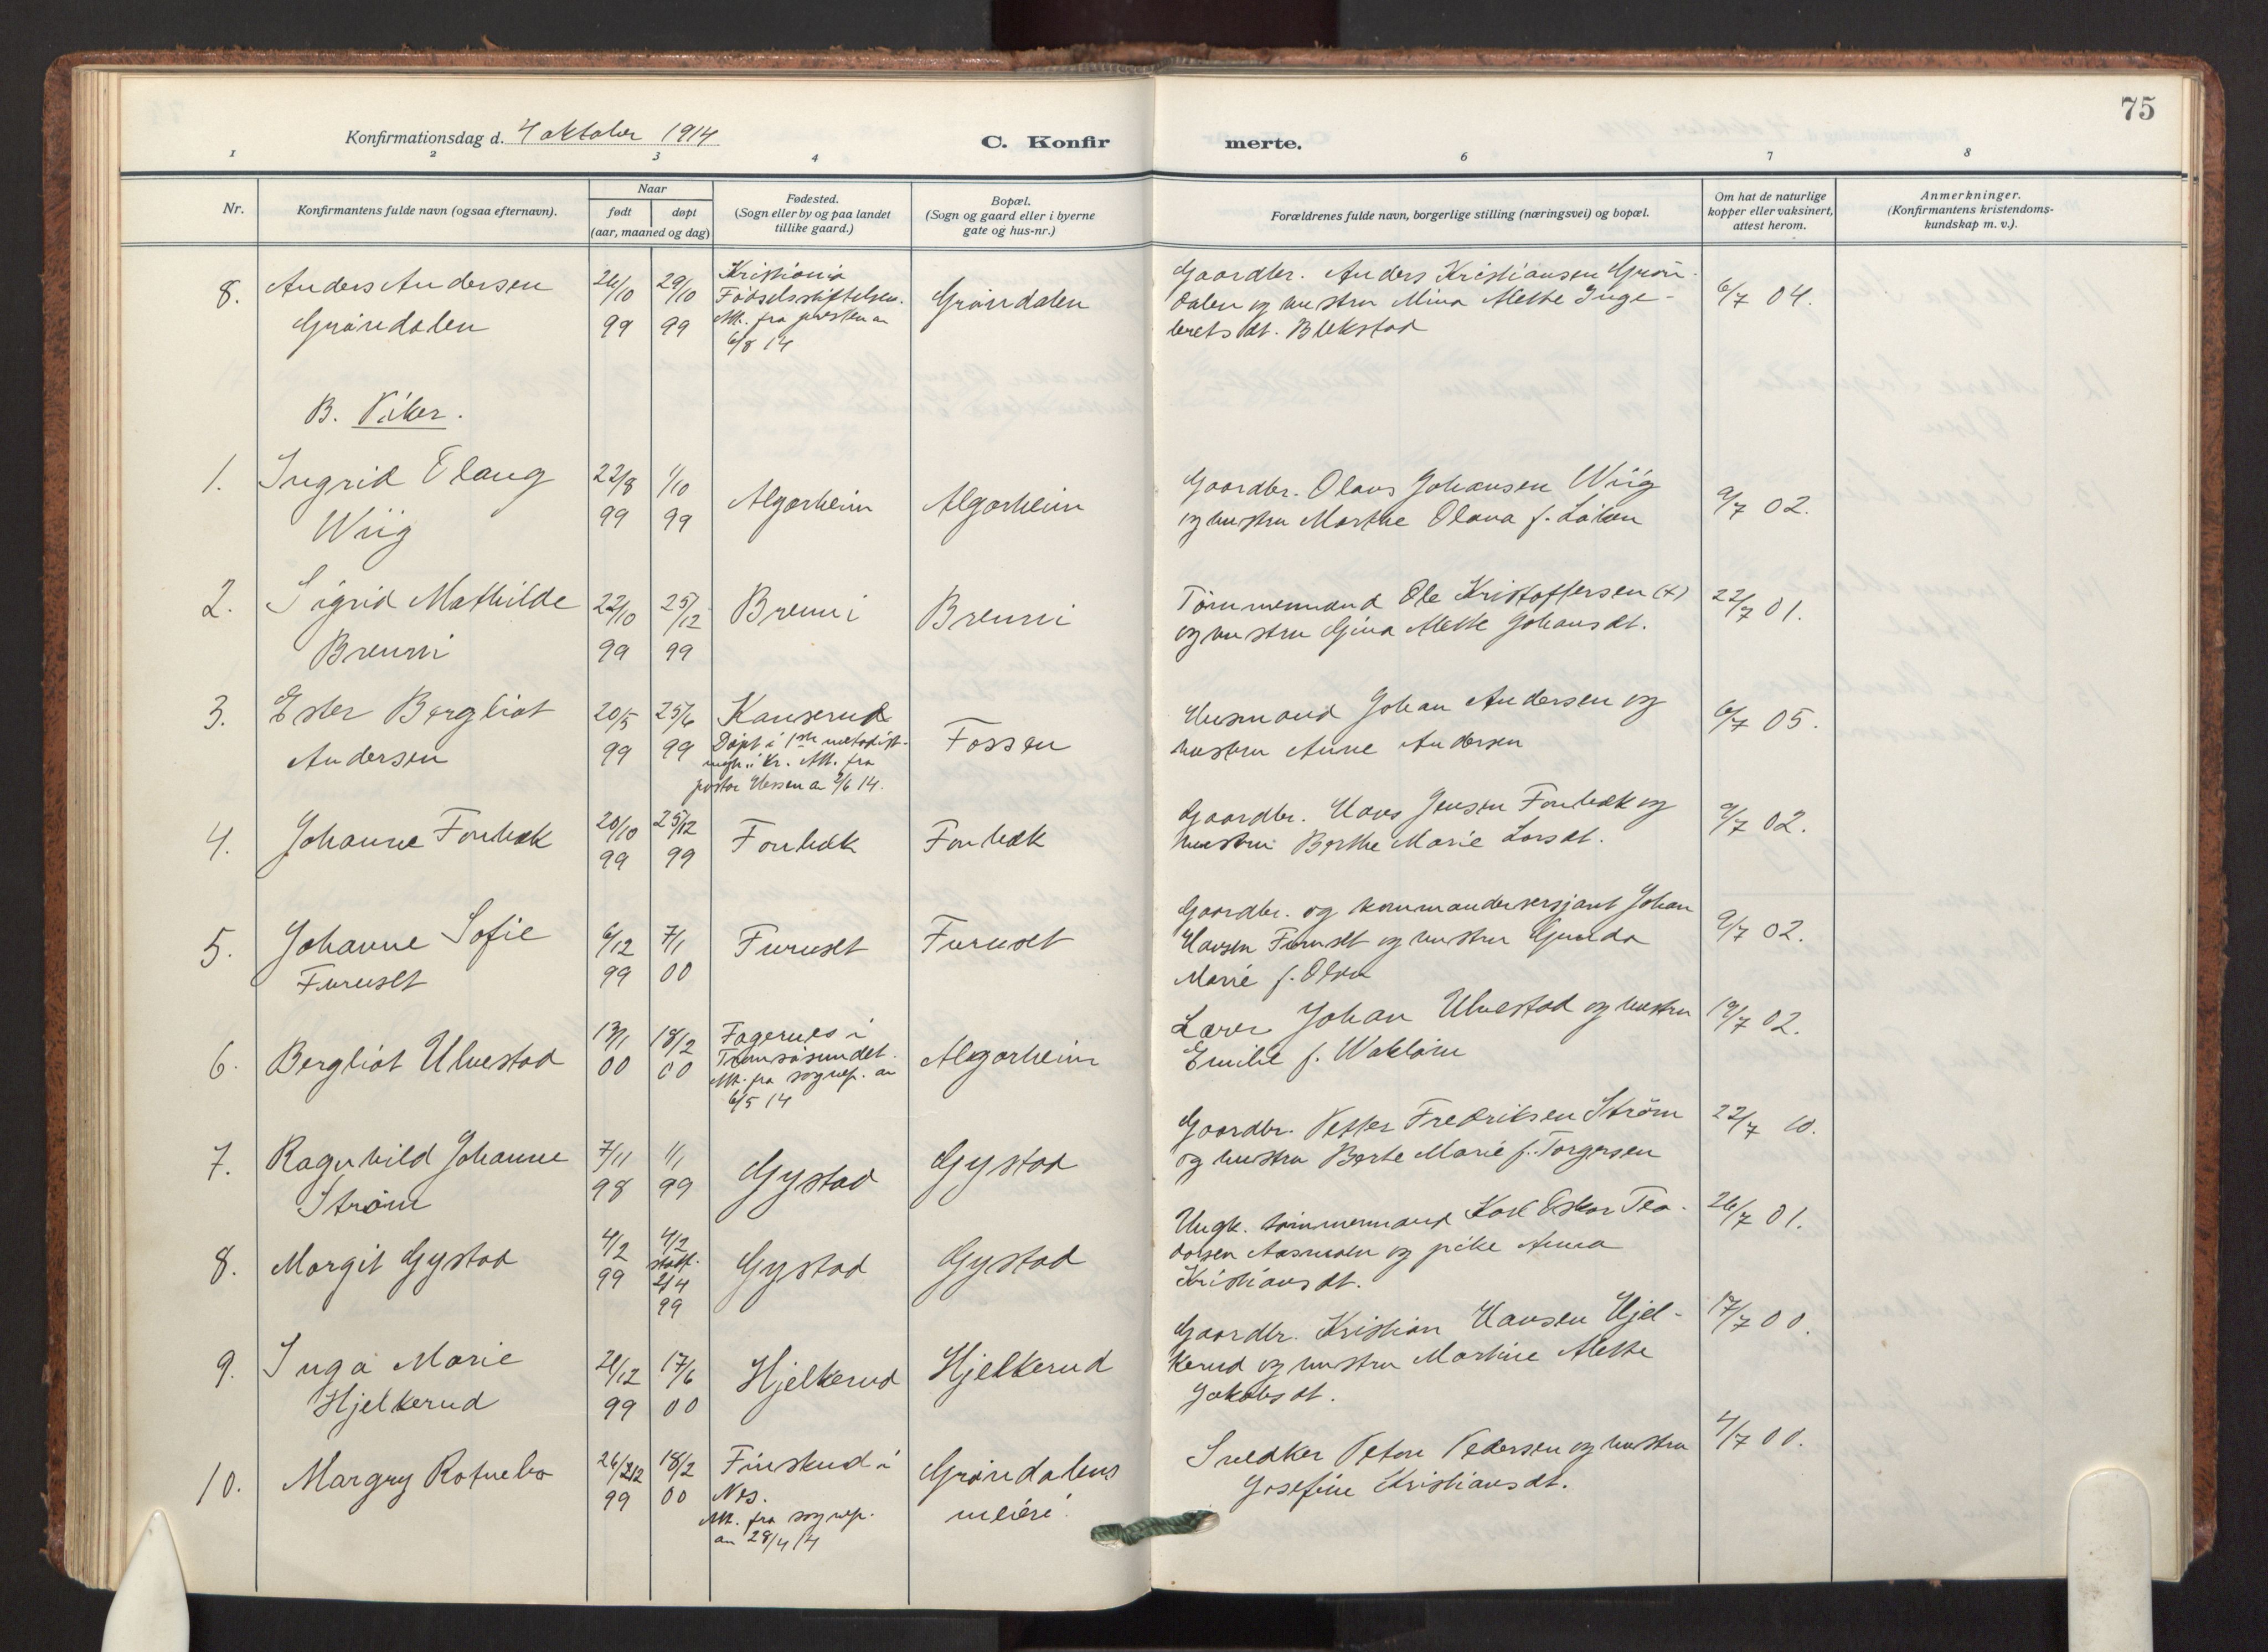 75
Konfirmationsdag d. 4 oktober 1914
C. Konfirmerte.
1 2 3 4 6 7 8
Nr.
Konfirmantens fulde navn (ogsaa efternavn).
Naar
født døpt
(aar, maaned og dag)
Fødested.
(Sogn eller by og paa landet
tillike gaard.)
Bopæl.
(Sogn og gaard eller i byerne
gate og hus-nr.)
Forældrenes fulde navn, borgerlige stilling (næringsvei) og bopæl.
Om hat de naturlige
kopper eller vaksinert,
attest herom.
Anmerkninger.
(Konfirmantens kristendoms-
kundskap m. v.).
8. Anders Andersen
Grøndalen
26/10 99
29/10 99
Kristiania
Fødselsstiftelsen.
Att. fra presten av
6/8 14
Grøndalen
Gaardbr. Anders Kristiansen Grøn-
dalen og hustru Mina Mette Inge-
bretsdt. Blekstad
6/7 04.
B. Piker.
1. Ingrid Olaug
Wiig
22/8 99
1/10 99
Algarheim
Algarheim
Gaardbr. Olaus Johansen Wiig
og hustru Marthe Olava f. Løken
9/7 02.
2. Sigrid Mathilde
Brenni
22/10 99
25/12 99
Brenni
Brenni
Tømmermand Ole Kristoffersen (+)
og hustru Gina Mette Johansdt.
22/7 01.
3. Ester Bergliot
Andersen
20/5 99
25/6 99
Kauserud
Døpt i 1ste metodist-
megh. i Kr. Att. fra
pastor Hessen av 2/6 14.
Fossen
Husmand Johan Andersen og
hustru Anne Andersen
6/7 05.
4. Johanne Fonbæk
20/10 99
25/12 99
Fonbæk
Fonbæk
Gaardbr. Hans Jensen Fonbæk og
hustru Berthe Marie Larsdt.
9/7 02.
5. Johanne Sofie
Furuset
6/12 99
7/1 00
Furuset
Furuset
Gaardbr. og kommandersersjant Johan
Hansen Furuset og hustru Gunda
Marie f. Olsen
9/7 02.
6. Bergliot Ulvestad
13/1 00
18/2 00
Fagernes i
Tromsøsundet.
Att. fra sognep. av
6/5 14
Algarheim
Lærer Johan Ulvestad og hustru
Emilie f. Wakløin
19/7 02.
7. Ragnhild Johanne
Strøm
7/11 98
1/1 99
Gystad
Gystad
Gaardbr. Petter Fredriksen Strøm
og hustru Berte Marie f. Torgersen
22/7 10.
8. Margit Gystad
4/2 99
4/2
stadf.
2/4 99
Gystad
Gystad
Ungk. tømmermand Karl Oskar Teo-
dorsen Aasmoen og pike Anna
Kristiansdt.
26/7 01.
9. Inga Marie
Hjelkerud
21/12 99
17/6 00
Hjelkerud
Hjelkerud
Gaardbr. Kristian Hansen Hjel-
kerud og hustru Martine Mette
Jakobsdt.
17/7 00.
10. Margry Rotnebo
26/12 99
18/2 00
Finskud i
Nes.
Att. fra sognep.
av 28/4 14
Grøndalens
meieri
Snedker Peter Pedersen og hustru
Josefine Kristiansdt.
4/7 00.